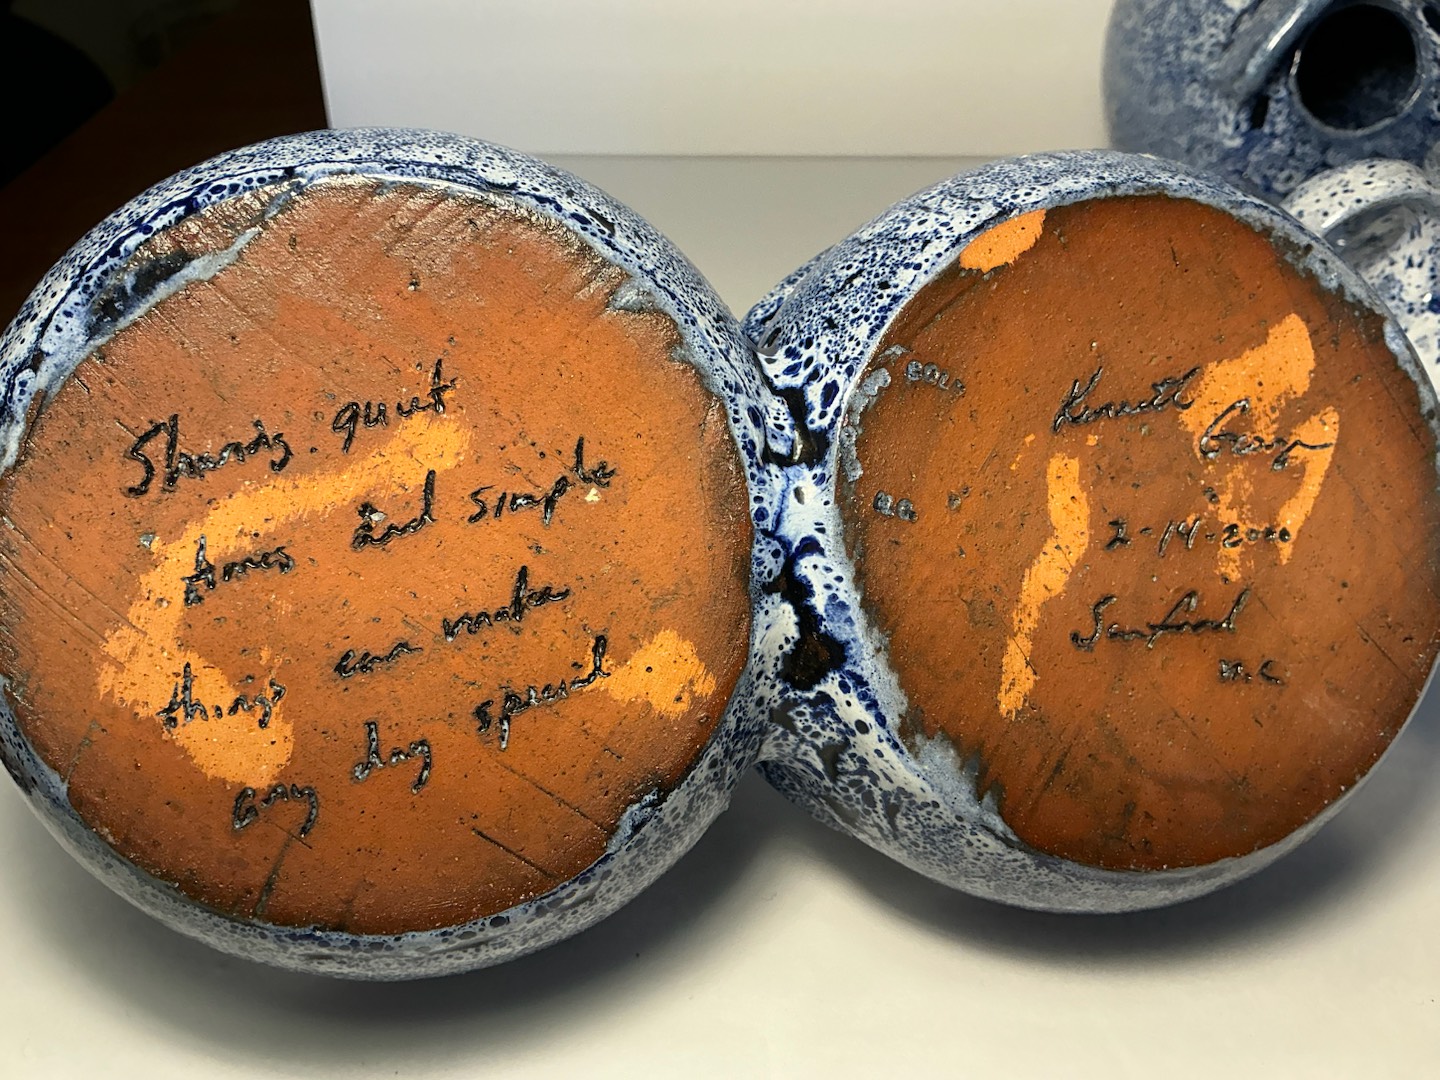 Sharing quiet
times and simple
things can make
Every day special
Kenneth
George
2-14-2000
Sanford
N.C